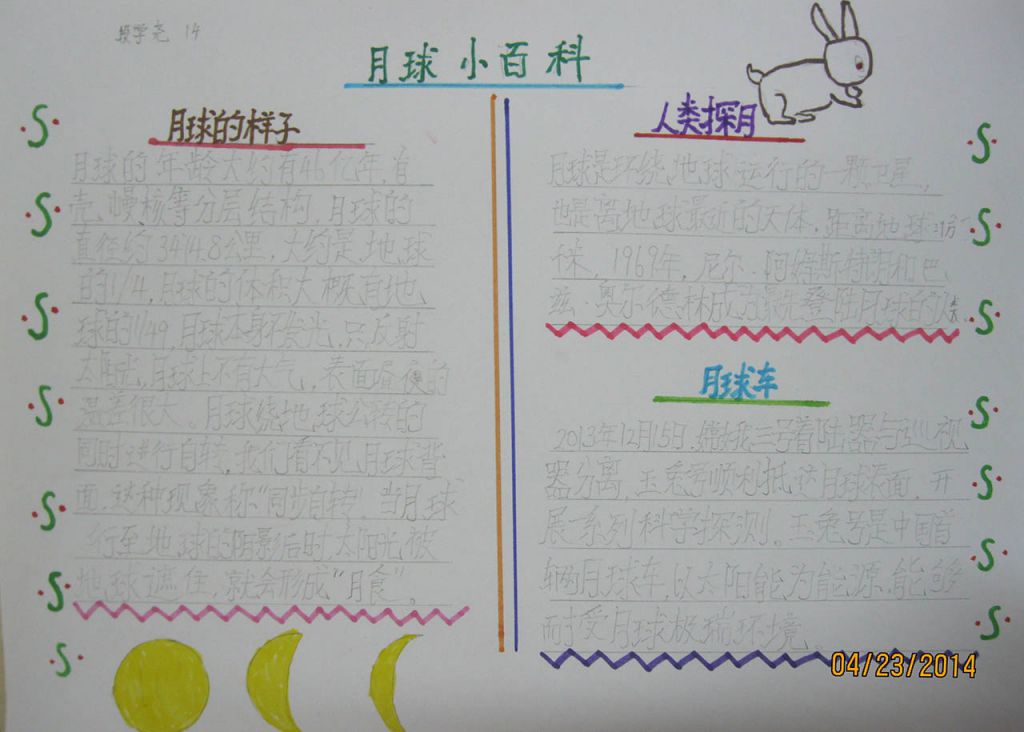 段学尧 14
月球小百科
月球的样子
月球的年龄大约有46亿年,有
壳、幔核等分层结构,月球的
直径约3474.8公里,大约是地球
的1/4,月球的体积大概有地
球的1/49,月球本身不会光,只反射
太阳光,月球上不有大气,表面昼夜的
温差很大。月球绕地球公转的
同时进行自转,我们看不见月球背
面,这种现象称“同步自转”,当月球
行至地球的阴影后时太阳光被
地球遮住,就会形成“月食”。
人类探月
月球是环绕地球运行的一颗卫星,
也是离地球最近的天体,距离地球
千米,1969年,尼尔·阿姆斯特朗和巴
兹·奥尔德林成为最先登陆月球的人类
月球车
2013年12月15日,嫦娥三号着陆器与巡视
器分离,玉兔号顺利抵达月球表面,开
展系列科学探测。玉兔号是中国首
辆月球车,以太阳能为能源,能够
耐受月球极端环境。
04/23/2014